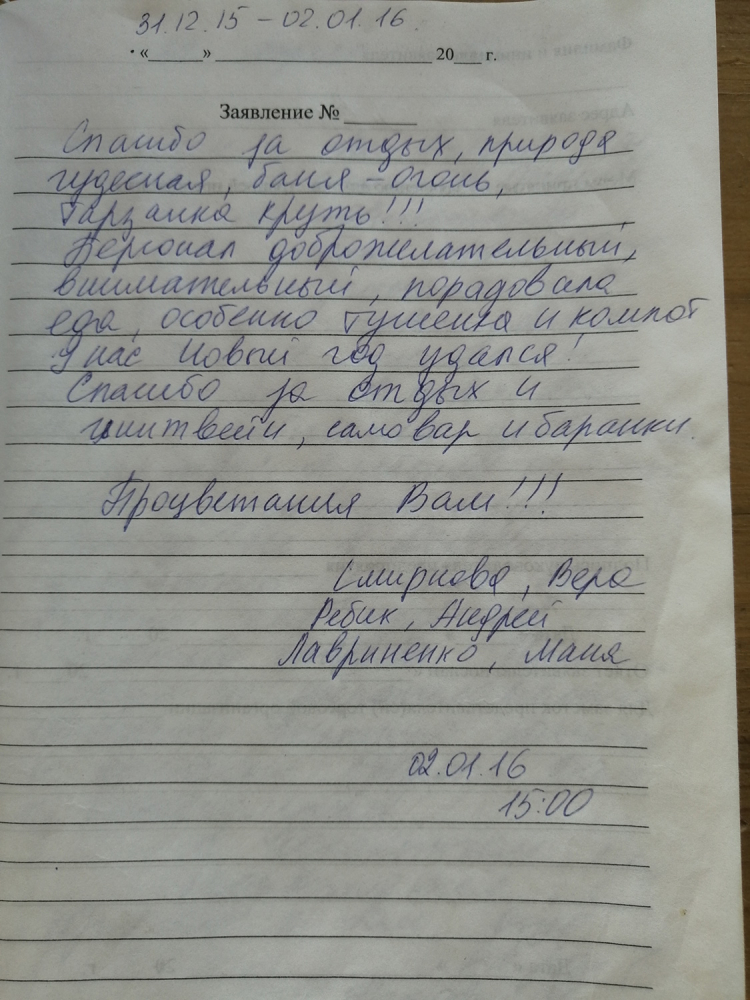 31.12.15 – 02.01.16.
"____" ______________ 20___ г.
Заявление № _______
Спасибо за отдых, природа
чудесная, баня – огонь,
Тарзанка круть!!!
Персонал доброжелательный,
внимательный, порадовала
еда, особенно тушенка и компот
У нас Новый год удался!
Спасибо за отдых и
глинтвейн, самовар и баранки.
Процветания Вам!!!
Смирнова, Вера
Ребик, Андрей
Лавриненко, Маня
02.01.16
15:00